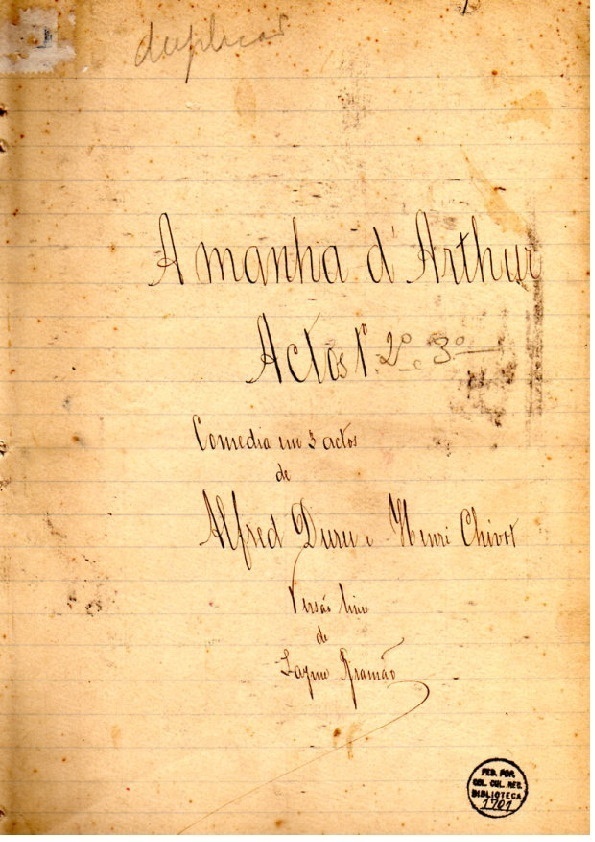 duplicar
A manha d'Arthur
Actos 1º. 2º e 3º
Comedia em 3 actos
de
Alfred Duru e Henri Chivot
Versão livre
de
Jayme
FED. POR.
COL. CUL. REC.
BIBLIOTECA
1701